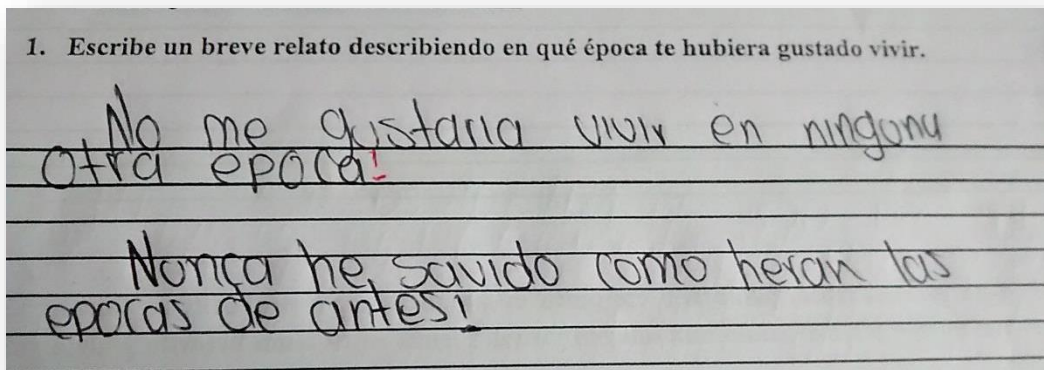 1. Escribe un breve relato describiendo en qué época te hubiera gustado vivir.
No me gustaria vivir en ninguna
otra epoca!
Nunca he savido como heran las
epocas de antes!